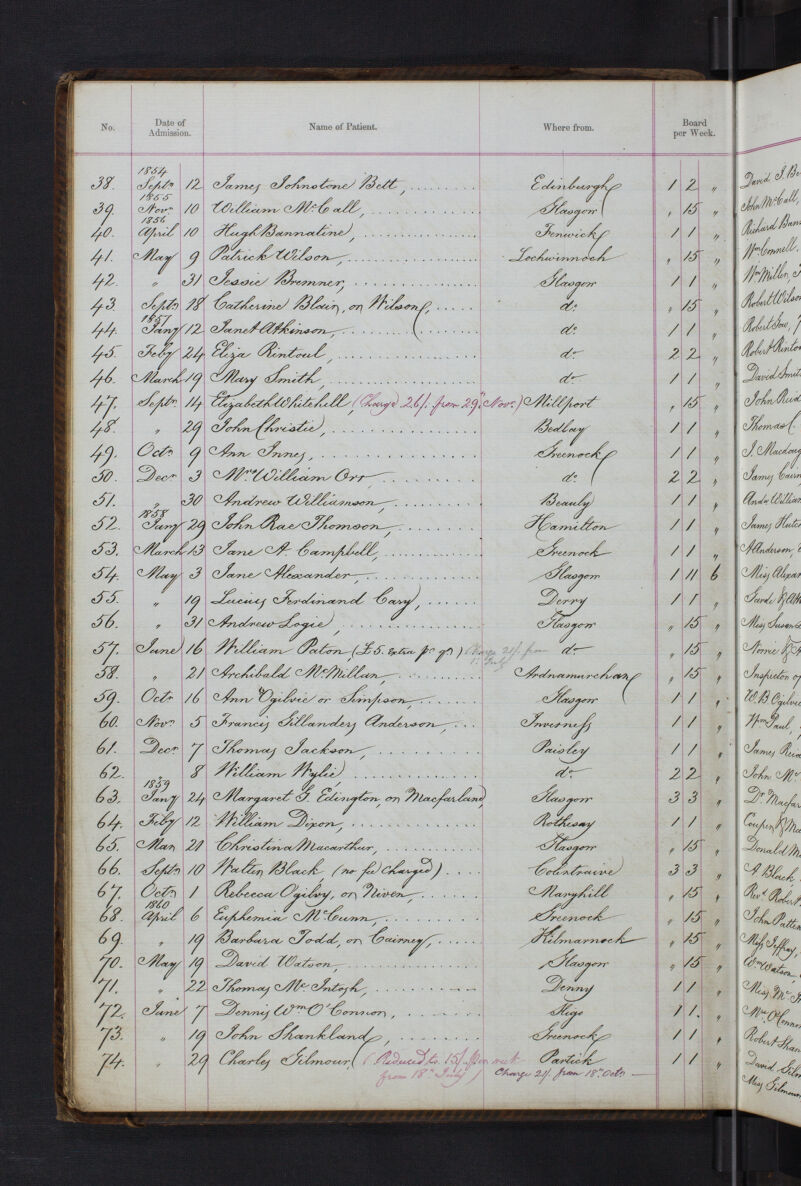 No. Date of Admission. Name of Patient. Where from. Board per Week.
1854
38. Septr 12 James Johnstone Bett, Edinburgh 1 2 „ David J. Be
1855
39. Novr 10 William McCall, Glasgow „ 15 „ John McCall,
1856
40. April 10 Hugh Bannatine, Fenwick 1 1 „ Richard Bann
41. May 9 Patrick Wilson, Lochwinnoch „ 15 „ Wm Connell.
42. „ 31 Jessie Bremner, Glasgow 1 1 „ Wm Miller, J
43 Septr 18 Catherine Blair, or Wilson, do „ 15 „ Robert Wilso
1857
44. Jany 12 Janet Atkinson, do 1 1 „ Robert Gow,
45. Feby 24 Eliza Rintoul, do 2 2 „ Robert Rinto
46. March 19 Mary Smith, do 1 1 „ David Smit
47. Septr 14 Elizabeth Whitehill, (Charge 26/. from 29th Novr.) Millport „ 15 „ John Reid
48. „ 29 John Christie, Bedlay 1 1 „ Thomas C
49. Octr 9 Ann Innes, Greenock 1 1 „ J. Macdoug
50. Decr 3 Mrs William Orr, do 2 2 „ James Cairn
51. „ 30 Andrew Williamson, Beauly 1 1 „ Andw William
1858
52. Jany 29 John Rae Thomson, Hamilton 1 1 „ James Hutch
53. March 13 Jane A. Campbell, Greenock 1 1 „ A Anderson,
54. May 3 Jane Alexander Glasgow 1 11 6 Miss Alexan
55. „ 19 Lucius Ferdinand Cary, Derry 1 1 „
56. „ 31 Andrew Logie, Glasgow „ 15 „ Miss Susan
57. June 16 William Paton, (£5. extra pr qr) (Charge 21/. from do „ 15 „
1st July
58. „ 21 Archibald McMillan, Ardnamurchan „ 15 „ Inspector of
59. Octr 16 Ann Ogilvie or Simpson, Glasgow 1 1 „ W. B. Ogilvie
60. Novr 5 Francis Gillanders Anderson, Inverness 1 1 „ Wm Paul,
61. Decr 7 Thomas Jackson, Paisley 1 1 „ James Reid
62. „ 8 William Wylie do 2 2 „ John Mc
1859
63. Jany 24 Margaret G. Edington, or Macfarland, Glasgow 3 3 „ Dr Macfar
64. Feby 12 William Dixon, Rothesay 1 1 „ Couper & Ma
65. Mar 21 Christina Macarthur, Glasgow „ 15 „ Donald M
66. Septr 10 Walter Black (no fee charged) Colintraive 3 3 „ A Black
67. Octr 1 Rebecca Ogilvy, or Niven, Maryhill „ 15 „ Revd Robert
1860
68. April 6 Euphemia McCunn, Greenock „ 15 „ John Patten
69. „ 19 Barbara Todd, or Cairney, Kilmarnock „ 15 „ Miss Jeffray,
70. May 19 David Watson, Glasgow „ 15 „ Wm Watson
71. „ 22 Thomas McIntosh, Denny 1 1 „ Miss Mc
72. June 7 Dennis Wm O'Connor, Sligo 1 1. „ Mrs O'Conno
73. „ 19 John Shankland, Greenock 1 1 „ Robert Shan
74. „ 29 Charles Gilmour, (Reduced to 15/. per week Partick 1 1 „ David Gilm
from 18th July) Charge 21/. from 18th Octr Miss Gilmour